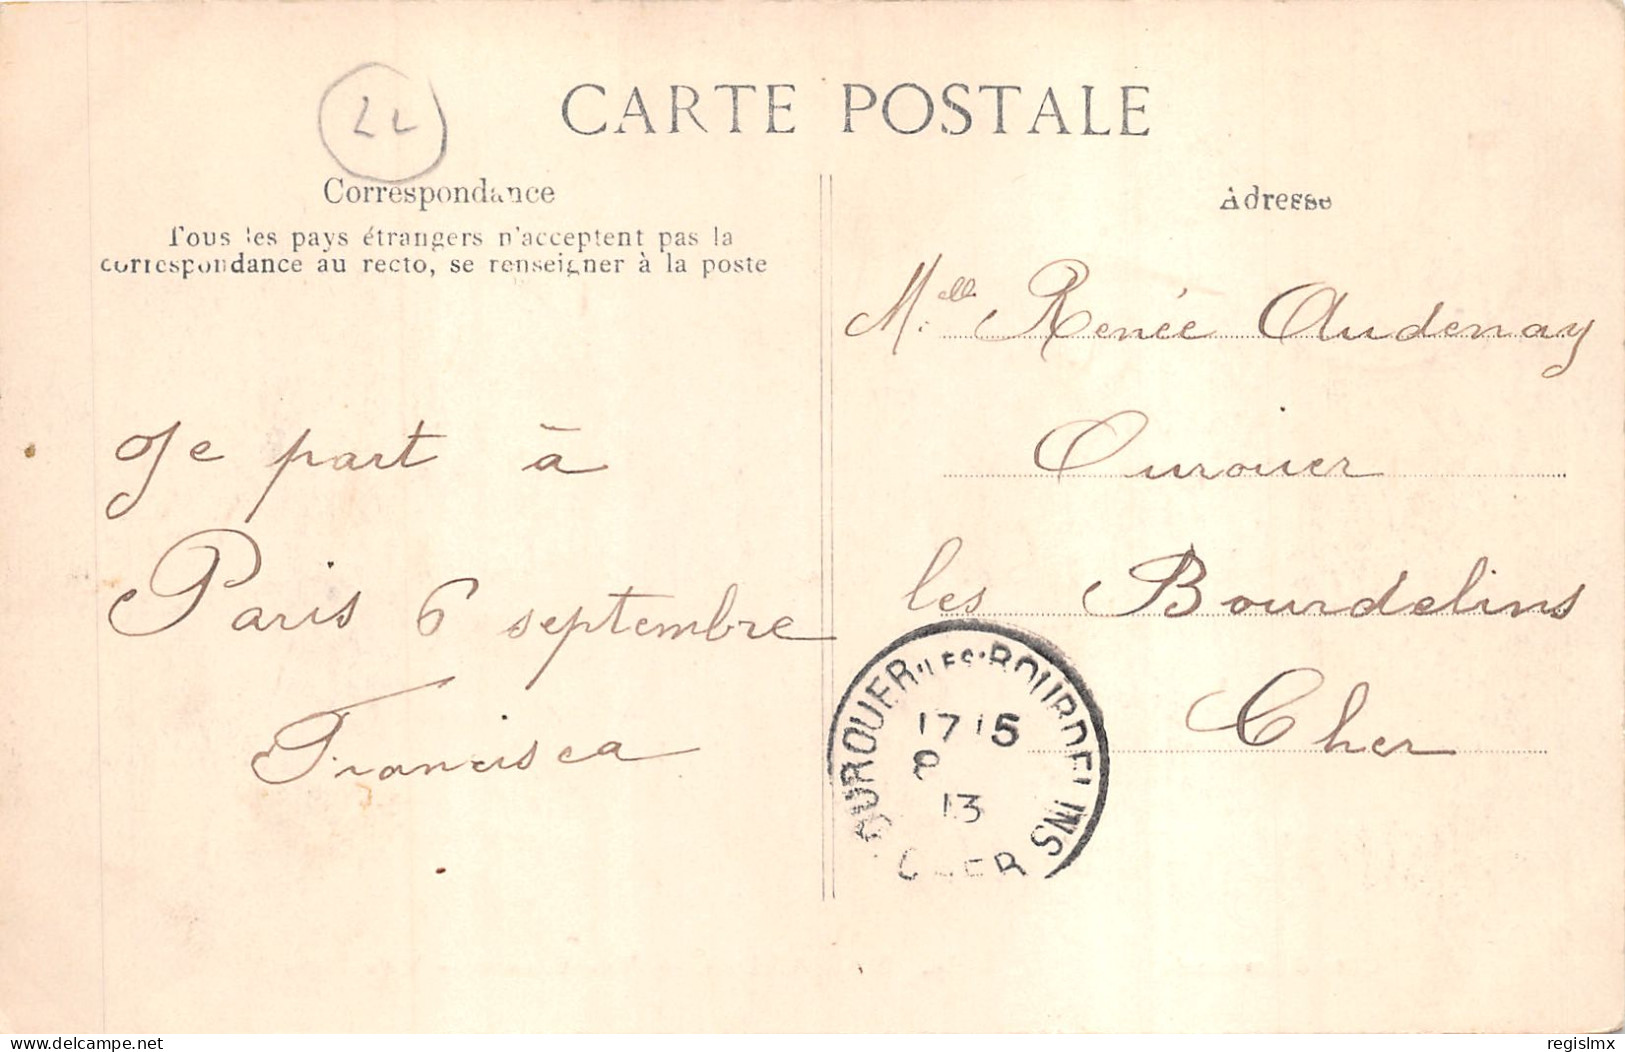 LL
CARTE POSTALE
Correspondance
Tous les pays étrangers n'acceptent pas la
correspondance au recto, se renseigner à la poste
Je part à
Paris 6 septembre
Francisca
Adresse
Melle Renée Audenay
Ourouer
les Bourdelins
Cher
OUROUER-LES-BOURDELINS
17 15
8
13
CHER
www.delcampe.net
regislmx